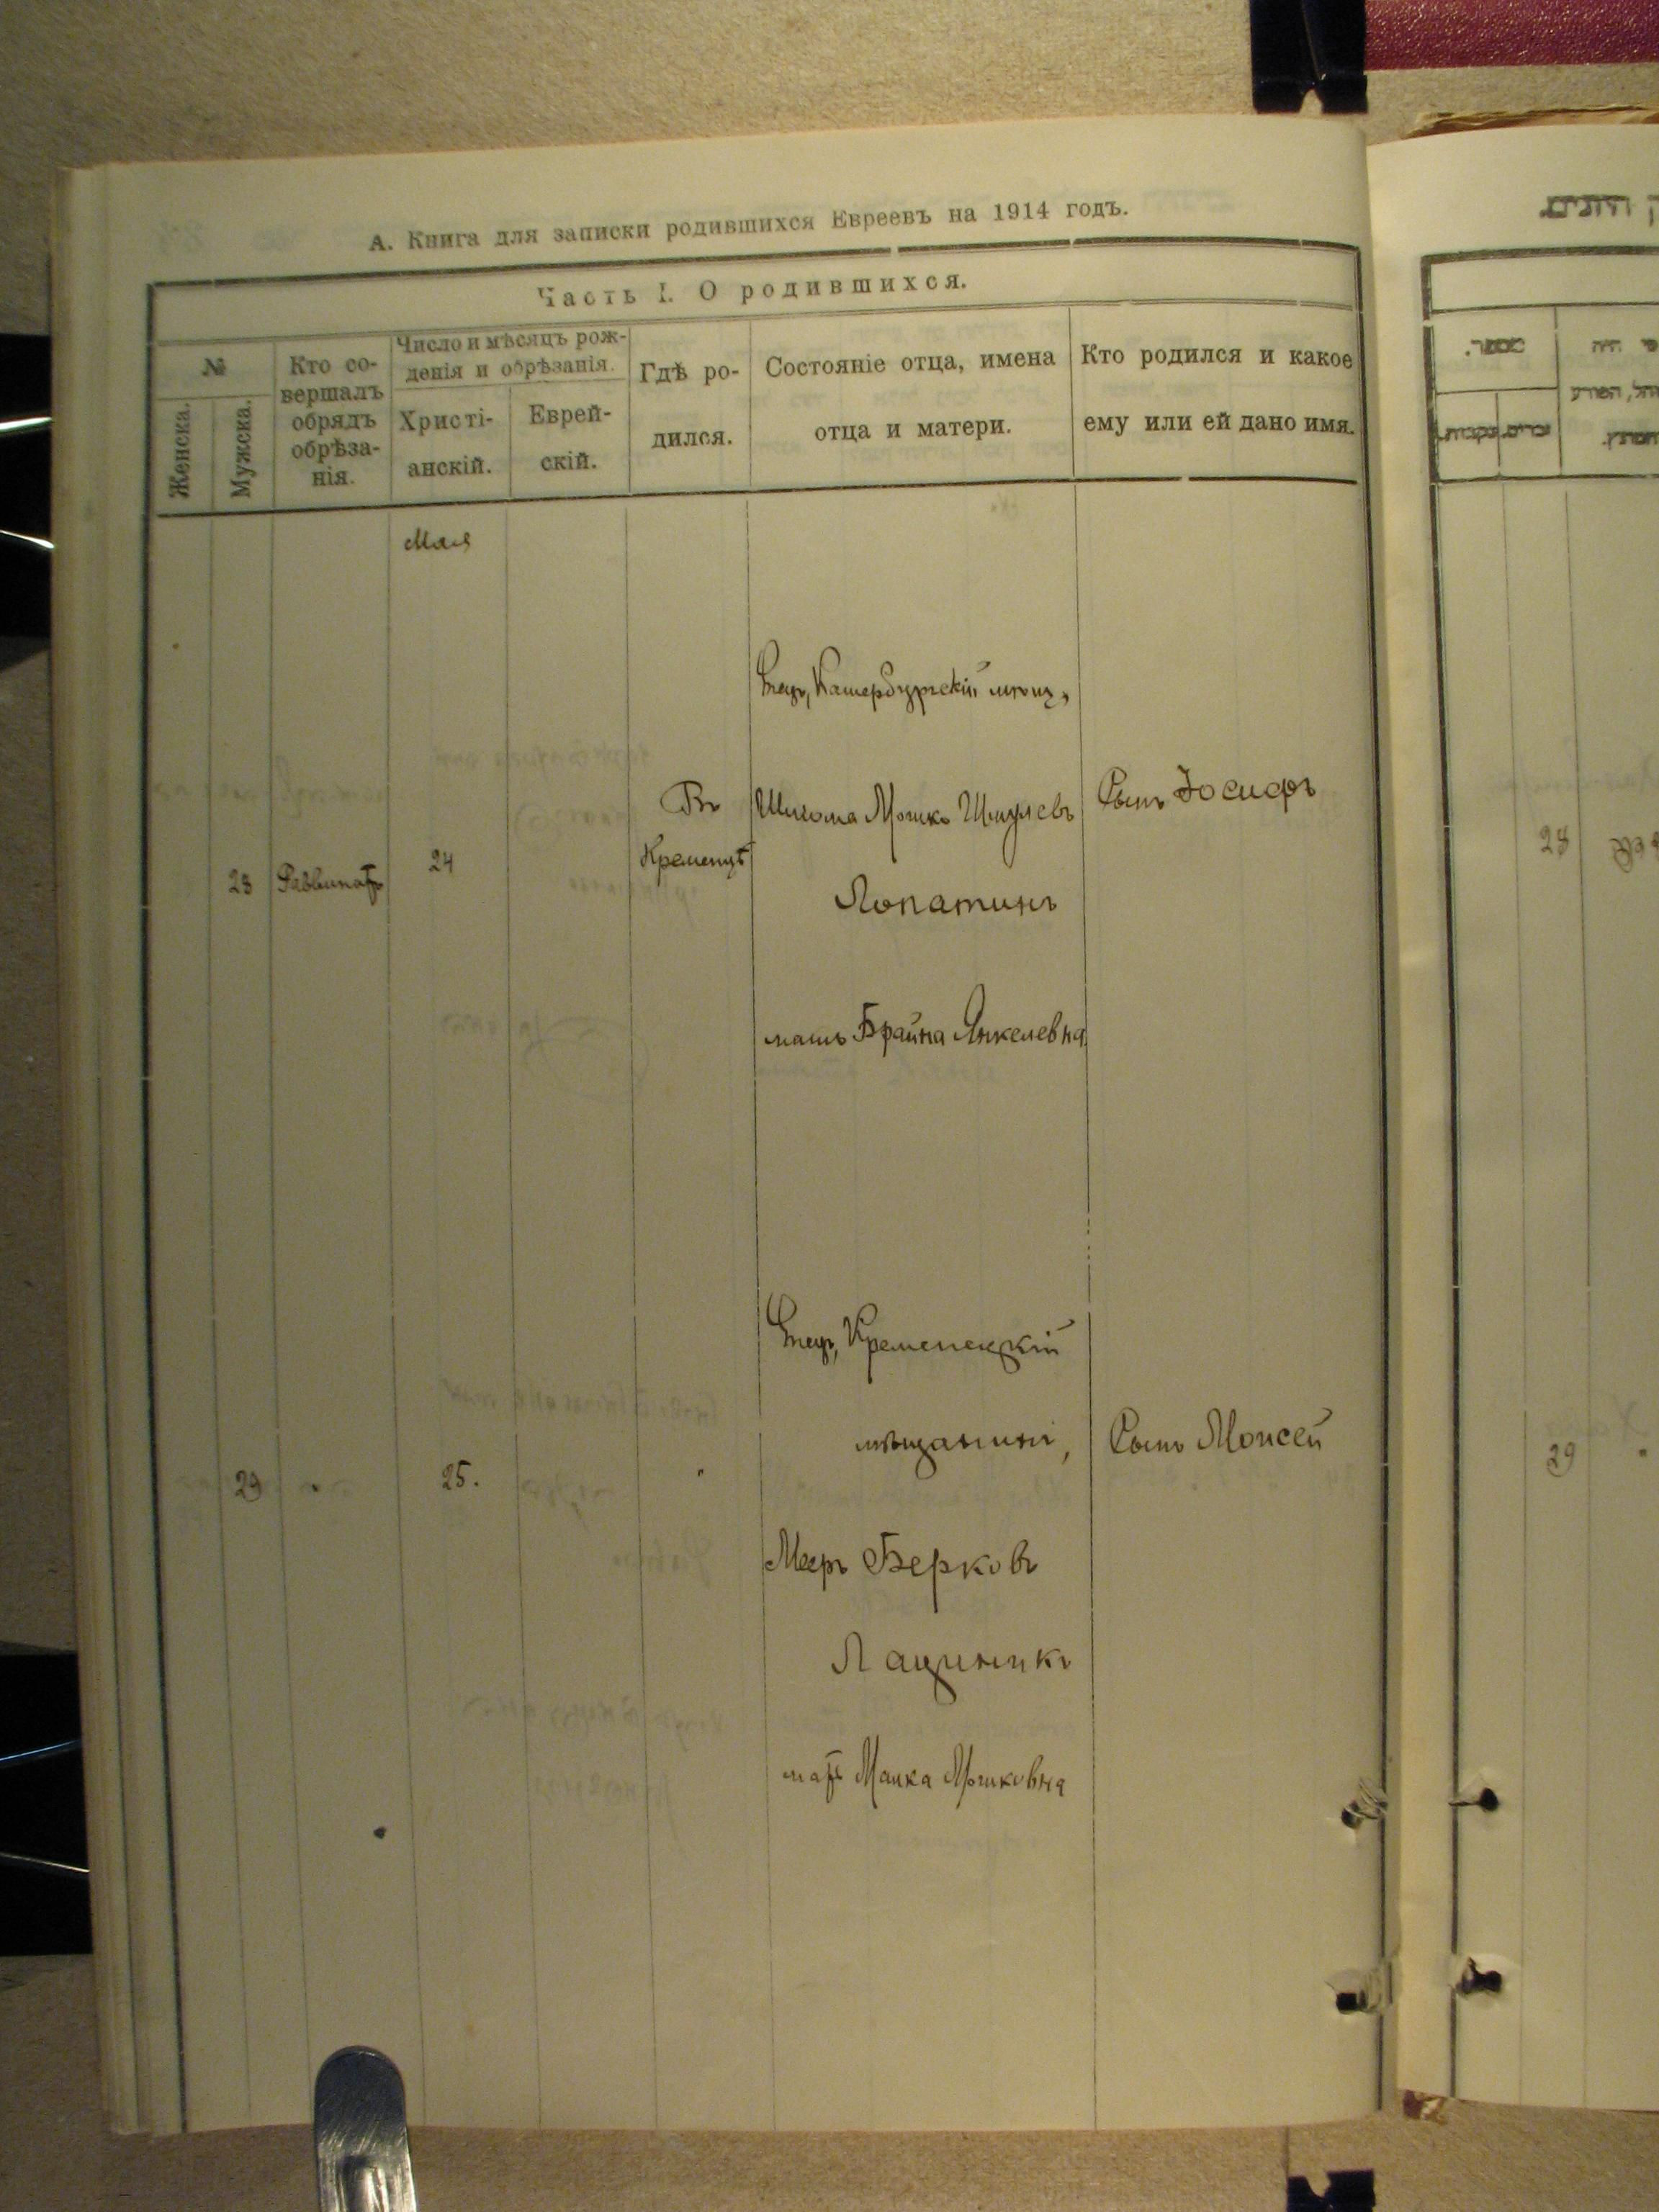 А. Книга для записки родившихся Евреевъ на 1914 годъ.
Часть I. О родившихся.
№
Женска.
Мужска.
Кто со-
вершалъ
обрядъ
обрѣза-
нія.
Число и мѣсяцъ рож-
денія и обрѣзанія.
Христі-
анскій.
Еврей-
скій.
Гдѣ ро-
дился.
Состояніе отца, имена
отца и матери.
Кто родился и какое
ему или ей дано имя.
Мая
28
24
Въ
Кременцѣ
Отецъ, Катербургскій мѣщ.,
Шлома Мошко Шмулевъ
Лопатинъ
мать Брайна Янкелевна
Сынъ Іосифъ
29
"
25.
"
Отецъ, Кременецкій
мѣщанинъ,
Мееръ Берковъ
мать Малка Мошковна
Сынъ Моисей
מספר.
זכרים.
נקבות.
28
29
"